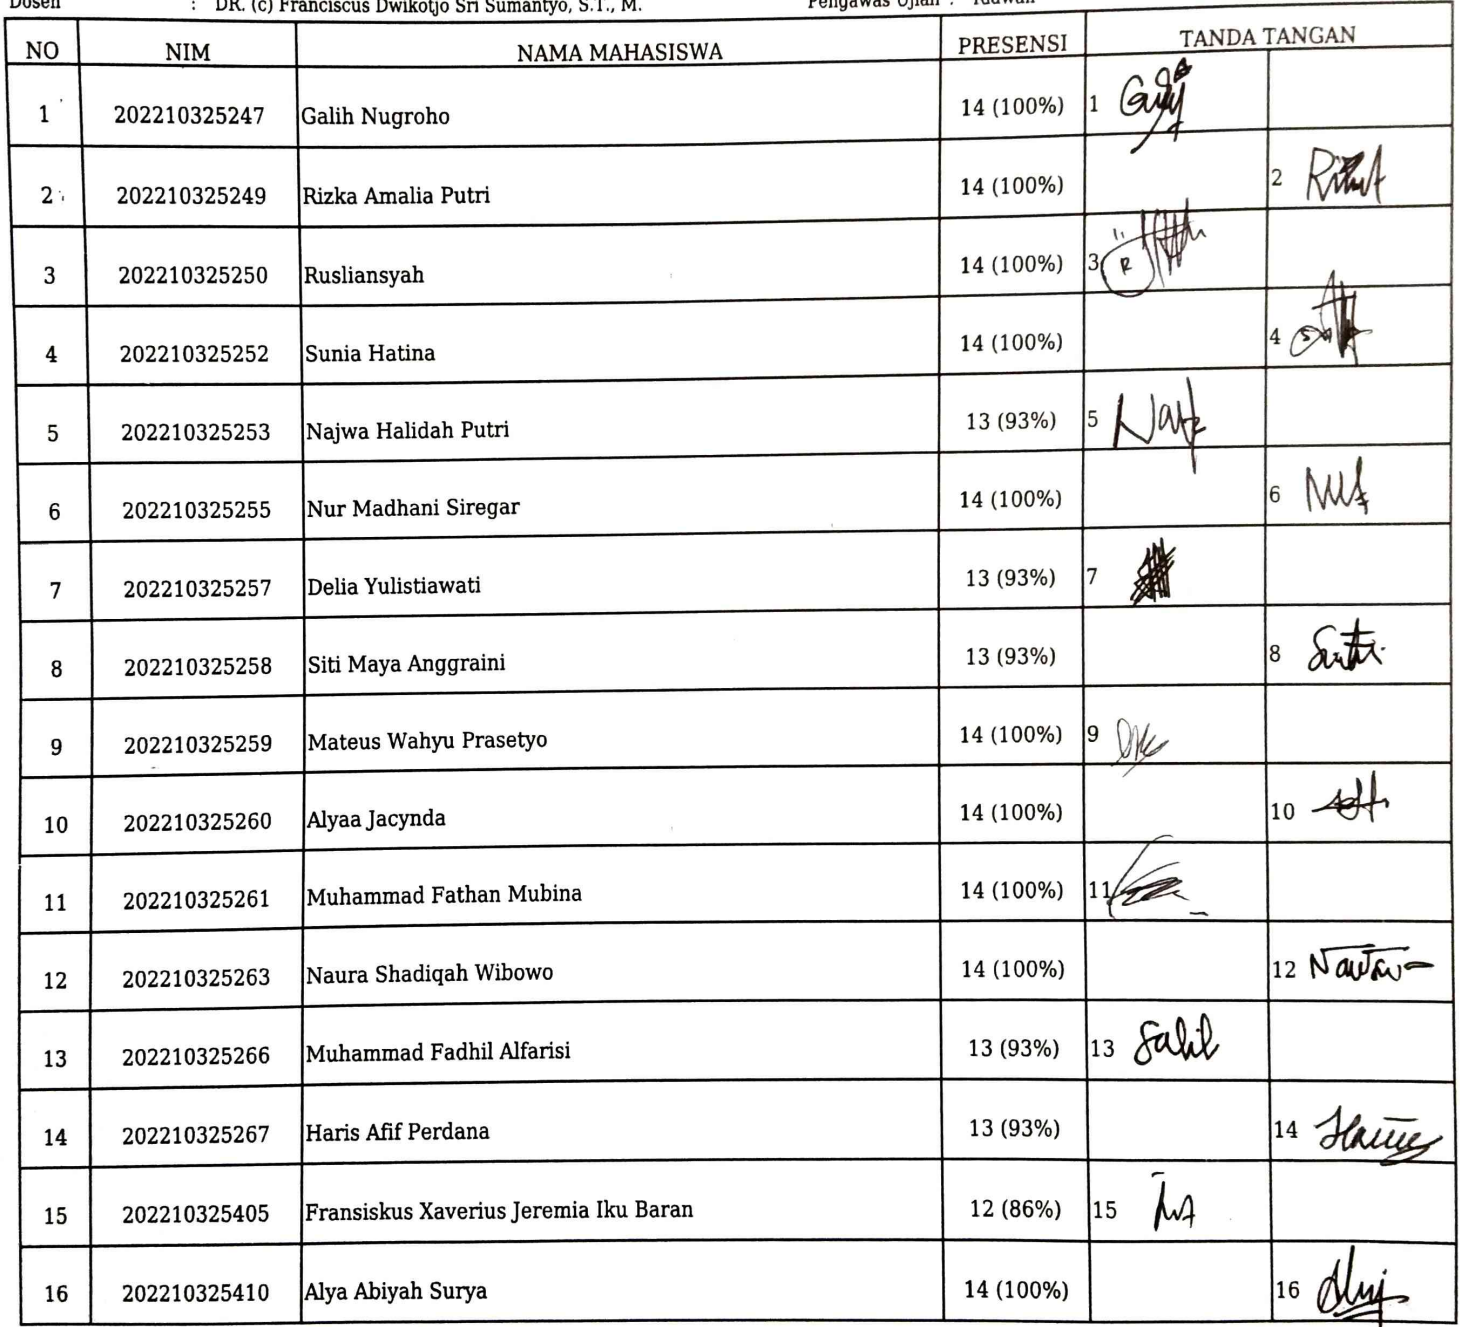 Dosen : DR. (c) Franciscus Dwikotjo Sri Sumantyo, S.T., M. Pengawas Ujian : Ridwan
NO NIM NAMA MAHASISWA PRESENSI TANDA TANGAN
1 202210325247 Galih Nugroho 14 (100%) 1
2 202210325249 Rizka Amalia Putri 14 (100%) 2
3 202210325250 Rusliansyah 14 (100%) 3 R
4 202210325252 Sunia Hatina 14 (100%) 4
5 202210325253 Najwa Halidah Putri 13 (93%) 5
6 202210325255 Nur Madhani Siregar 14 (100%) 6
7 202210325257 Delia Yulistiawati 13 (93%) 7
8 202210325258 Siti Maya Anggraini 13 (93%) 8
9 202210325259 Mateus Wahyu Prasetyo 14 (100%) 9
10 202210325260 Alyaa Jacynda 14 (100%) 10
11 202210325261 Muhammad Fathan Mubina 14 (100%) 11
12 202210325263 Naura Shadiqah Wibowo 14 (100%) 12
13 202210325266 Muhammad Fadhil Alfarisi 13 (93%) 13
14 202210325267 Haris Afif Perdana 13 (93%) 14
15 202210325405 Fransiskus Xaverius Jeremia Iku Baran 12 (86%) 15
16 202210325410 Alya Abiyah Surya 14 (100%) 16